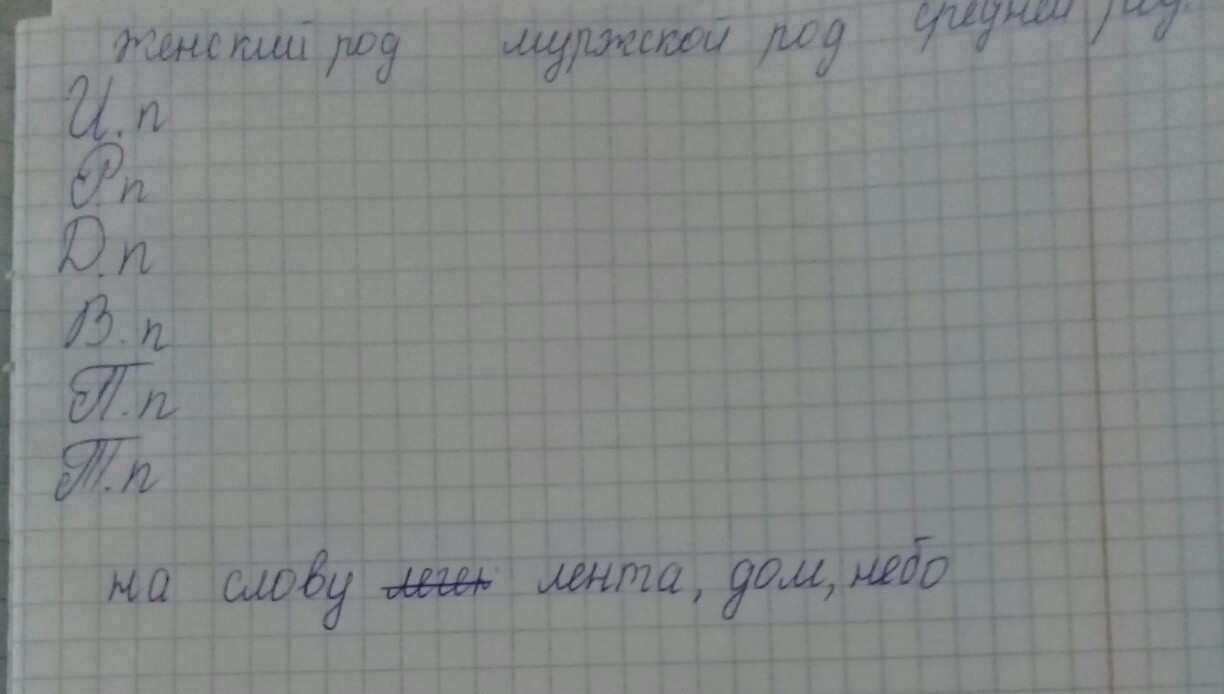 женский род муржской род средней род.
И.п
Р.п
Д.п
В.п
П.п
Т.п
на слову леген лента, дом, небо